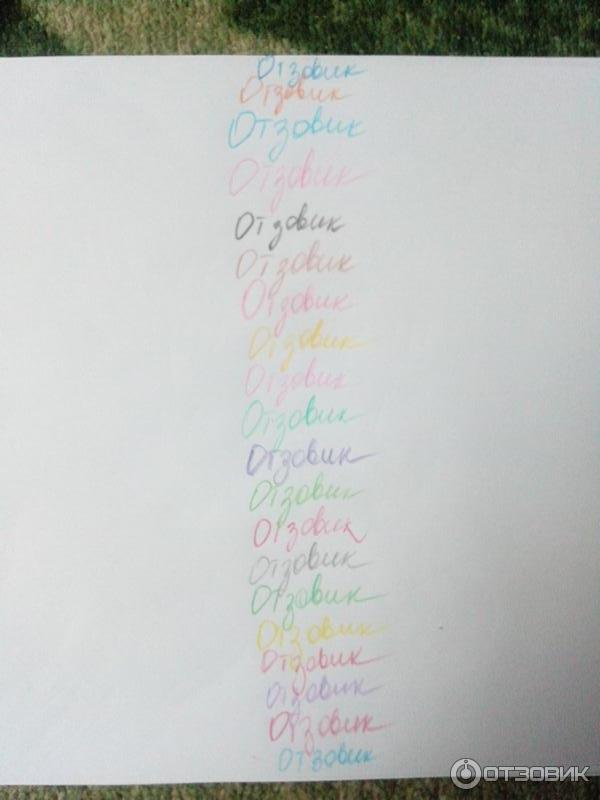 Отзовик
Отзовик
Отзовик
Отзовик
Отзовик
Отзовик
Отзовик
Отзовик
Отзовик
Отзовик
Отзовик
Отзовик
Отзовик
Отзовик
Отзовик
Отзовик
Отзовик
Отзовик
Отзовик
Отзовик
ОТЗОВИК